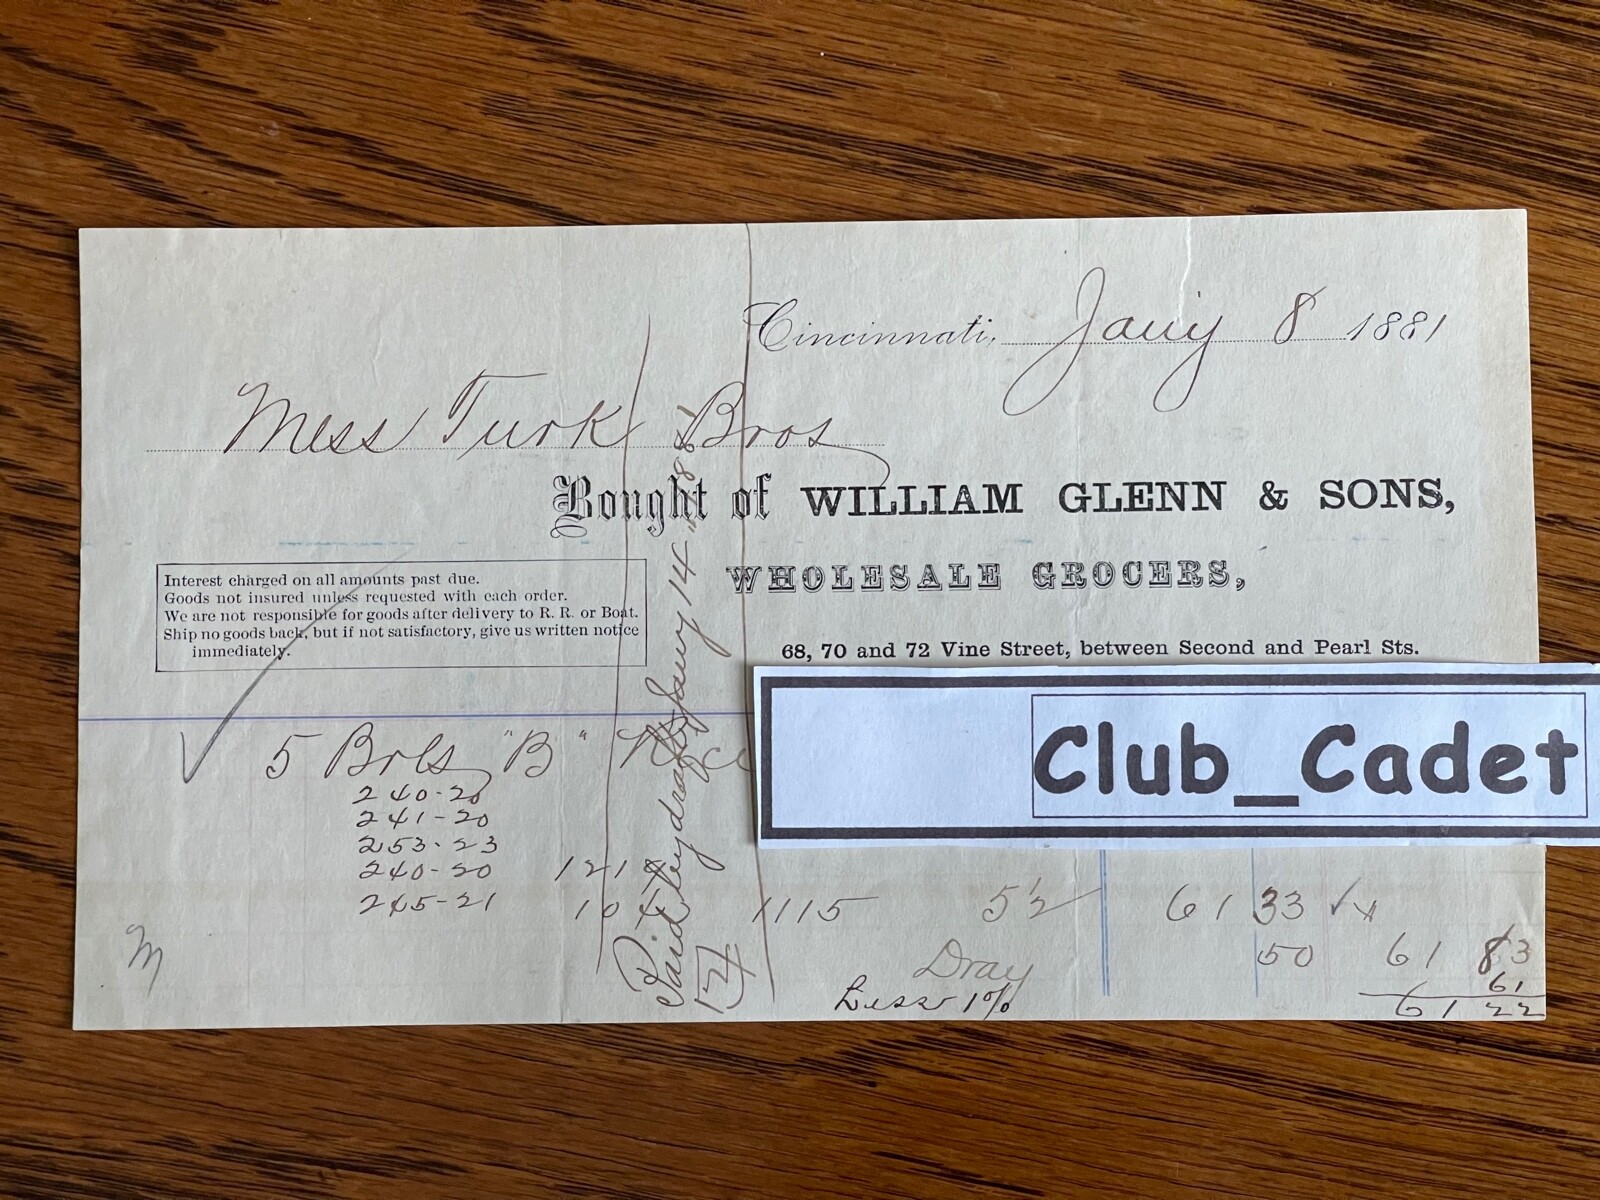 Cincinnati, Jany 8 1881
Mess Turk Bros
Bought of WILLIAM GLENN & SONS,
WHOLESALE GROCERS,
68, 70 and 72 Vine Street, between Second and Pearl Sts.
Interest charged on all amounts past due.
Goods not insured unless requested with each order.
We are not responsible for goods after delivery to R. R. or Boat.
Ship no goods back, but if not satisfactory, give us written notice
immediately.
Club_Cadet
5 Brls "B"
240-20
241-20
253-23
240-20 121
245-21 10 1115 5½ 61 33
Dray 50 61 83
Less 1% 61
61 22
Paid by draft Jany 14
M